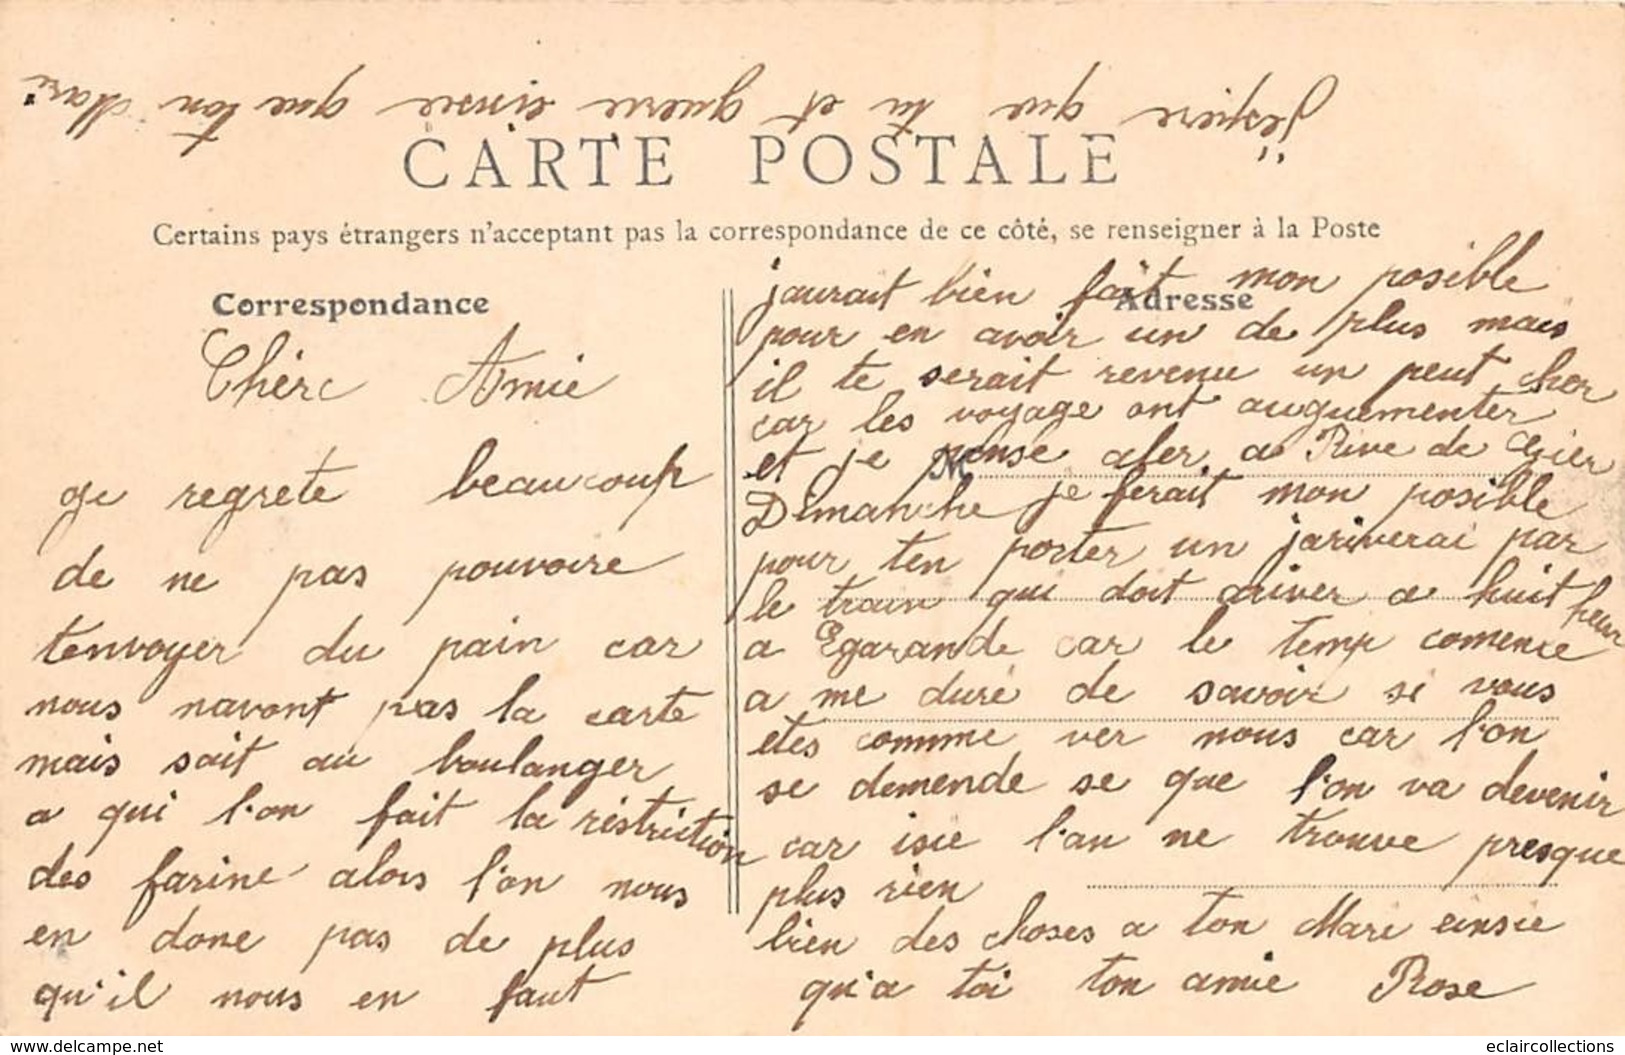 Jéspére que tu et guerie einsie que ton Mari
CARTE POSTALE
Certains pays étrangers n'acceptant pas la correspondance de ce côté, se renseigner à la Poste
Correspondance
Chère Amie
ge regrete beaucoup
de ne pas pouvoire
tenvoyer du pain car
nous navont pas la carte
mais sait au boulanger
a qui l'on fait la réstriction
des farine alors l'on nous
en done pas de plus
qu'il nous en faut
Adresse
M
jaurait bien fait mon posible
pour en avoir un de plus mais
il te serait revenu un peut cher
car les voyage ont auguementer
et je pense aler a Rive de Gier
Dimanche je ferait mon posible
pour ten porter un jariverai par
le train qui doit ariver a huit heur
a Egarande car le temp comence
a me duré de savoir si vous
etes comme ver nous car l'on
se demende se que l'on va devenir
car isie l'an ne trouve presque
plus rien
bien des choses a ton Mari einsie
qu'a toi ton amie Rose
www.delcampe.net
eclaircollections